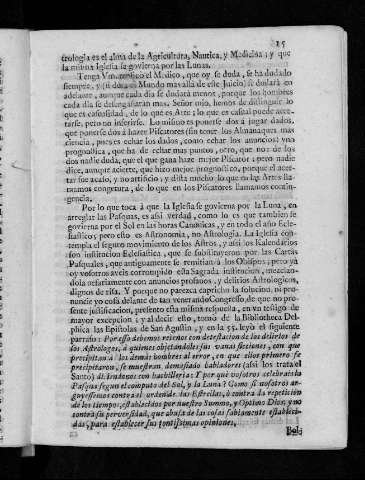 15
trologia es el alma de la Agricultura, Nautica, y Medicina; y que
la misma Iglesia se govierna por las Lunas.
Tenga Vm. replicó el Medico, que oy se duda, se ha dudado
siempre, y (si dura el Mundo mas allá de este Juicio) se dudará en
adelante, aunque cada dia se dudará menos, porque los hombres
cada dia se desengañarán mas. Señor mio, hemos de distinguir lo
que es casualidad, de lo que es Arte; lo que es casual puede acer-
tarse, pero no inferirse. Lo mismo es ponerse dos à jugar dados,
que ponerse dos à hazer Piscatores (sin tener los Almanaques mas
ciencia, pues es echar los dados, como echar los anuncios) y na
prognostica, que ha de echar mas puntos, otro, que no: de los
dos nadie duda, que el que gana haze mejor Piscator; pero nadie
dice, aunque acierte, que hizo mejor prognostico, porque el acer-
tar fue acaso, y no artificio; y dista mucho lo que en las Artes lla-
mamos congetura, de lo que en los Piscatores llamamos contin-
gencia.
Por lo que toca à que la Iglesia se govierna por la Luna, en
arreglar las Pasquas, es assi verdad, como lo es que tambien se
govierna por el Sol en las horas Canonicas, y en todo el año Ecle-
siastico; pero esto es Astronomia, no Astrologia. La Iglesia con-
templa el seguro movimiento de los Astros, y assi los Kalendarios
son institucion Eclesiastica, que se substituyeron por las Cartas
Pasquales, que antiguamente se remitian à los Obispos; pero ya
oy vosotros aveis corrompido essa Sagrada institucion, mezclan-
dola nefariamente con anuncios profanos, y delirios Astrologicos,
dignos de risa. Y porque no parezca capricho lo sobredicho, ni pro-
nuncie yo cosa delante de tan venerando Congresso, de que no pre-
sente justificacion, presento esta misma respuesta, en un testigo de
mayor excepcion; y al decir esto, tomò de la Bibliotheca Del-
phica las Epistolas de San Agustin, y en la 55. leyò el siguiente
parrafo: Por esso debemos reirnos con detestacion de los delirios de
los Astrologos, à quienes objetandoles sus vanas ficciones, con que
precipitan à los demàs hombres al error, en que ellos primero se
precipitaron, se muestran demasiado habladores (assi los trata el
Santo) diziendonos con bachilleria: Y por què vosotros celebrais la
Pasqua segun el computo del Sol, y la Luna? Como si nosotros ar-
guyessemos contra el orden de las Estrellas, ò contra la repeticion
de los tiempos, establecidos por nuestro Summo, y Optimo Dios, y no
contra su perversidad, que abusa de las cosas sabiamente estableci-
das, para establecer sus tontissimas opiniones.